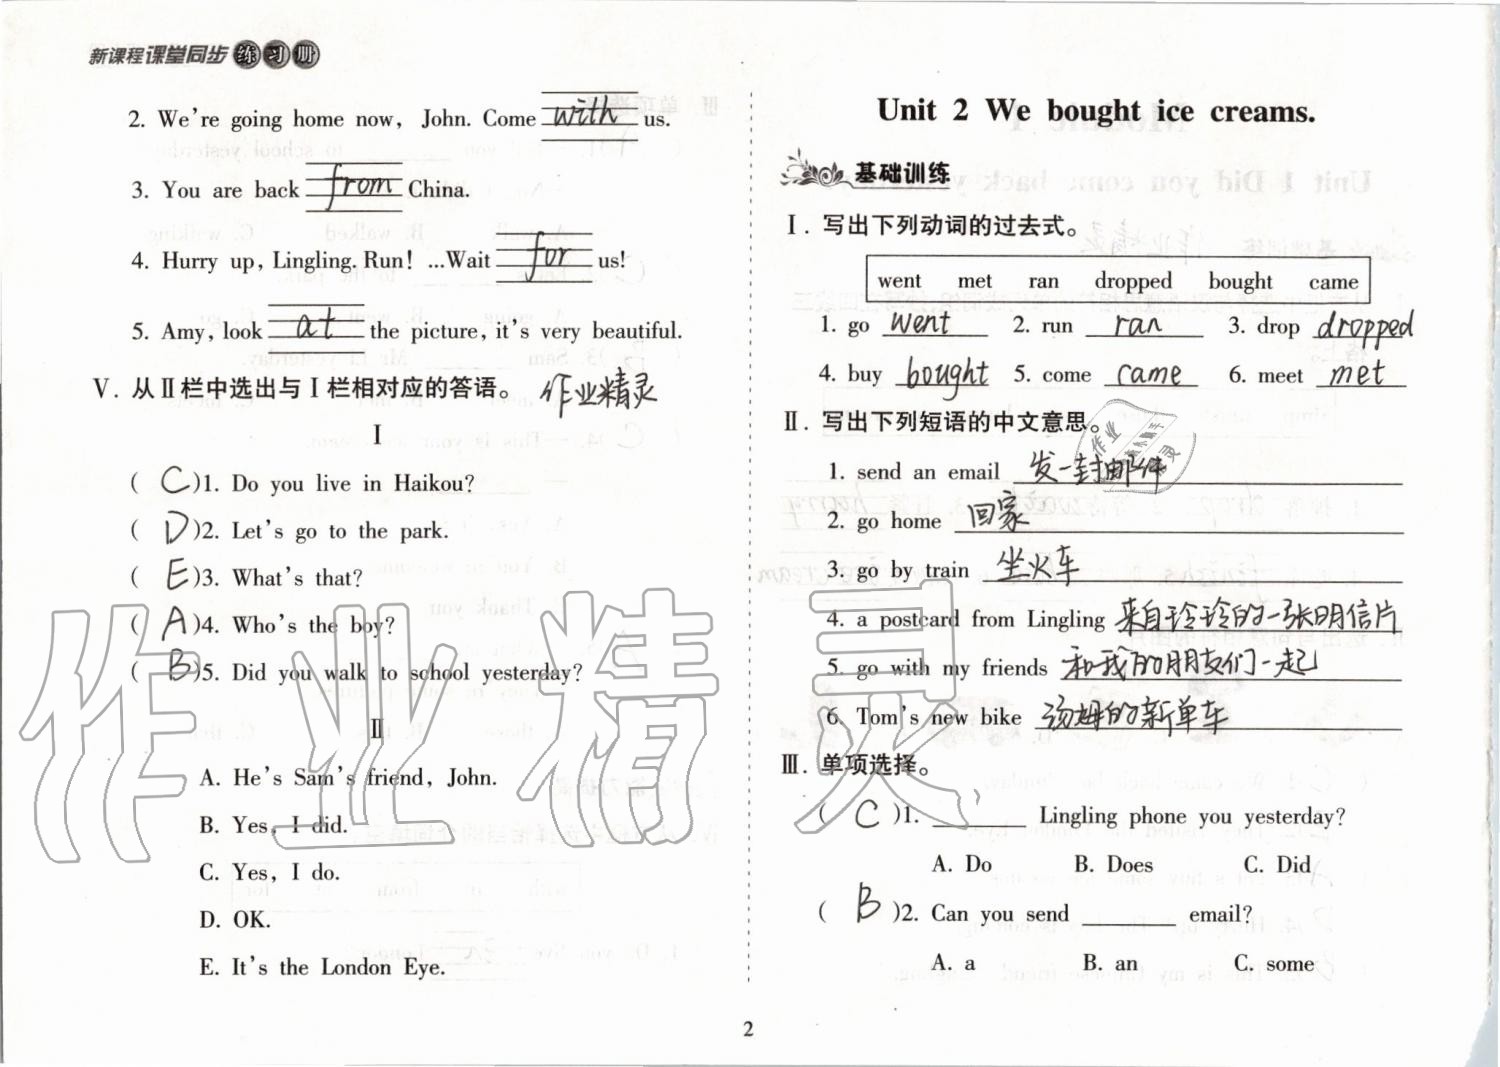 新课程课堂同步练习册
2. We're going home now, John. Come with us.
3. You are back from China.
4. Hurry up, Lingling. Run! …Wait for us!
5. Amy, look at the picture, it's very beautiful.
Ⅴ. 从Ⅱ栏中选出与Ⅰ栏相对应的答语。 作业精灵
Ⅰ
( C )1. Do you live in Haikou?
( D )2. Let's go to the park.
( E )3. What's that?
( A )4. Who's the boy?
( B )5. Did you walk to school yesterday?
Ⅱ
A. He's Sam's friend, John.
B. Yes, I did.
C. Yes, I do.
D. OK.
E. It's the London Eye.
Unit 2 We bought ice creams.
基础训练
Ⅰ. 写出下列动词的过去式。
went met ran dropped bought came
1. go went 2. run ran 3. drop dropped
4. buy bought 5. come came 6. meet met
Ⅱ. 写出下列短语的中文意思。
1. send an email 发一封邮件
2. go home 回家
3. go by train 坐火车
4. a postcard from Lingling 来自玲玲的一张明信片
5. go with my friends 和我的朋友们一起
6. Tom's new bike 汤姆的新单车
Ⅲ. 单项选择。
( C )1. ________ Lingling phone you yesterday?
A. Do B. Does C. Did
( B )2. Can you send ________ email?
A. a B. an C. some
2
作业精灵